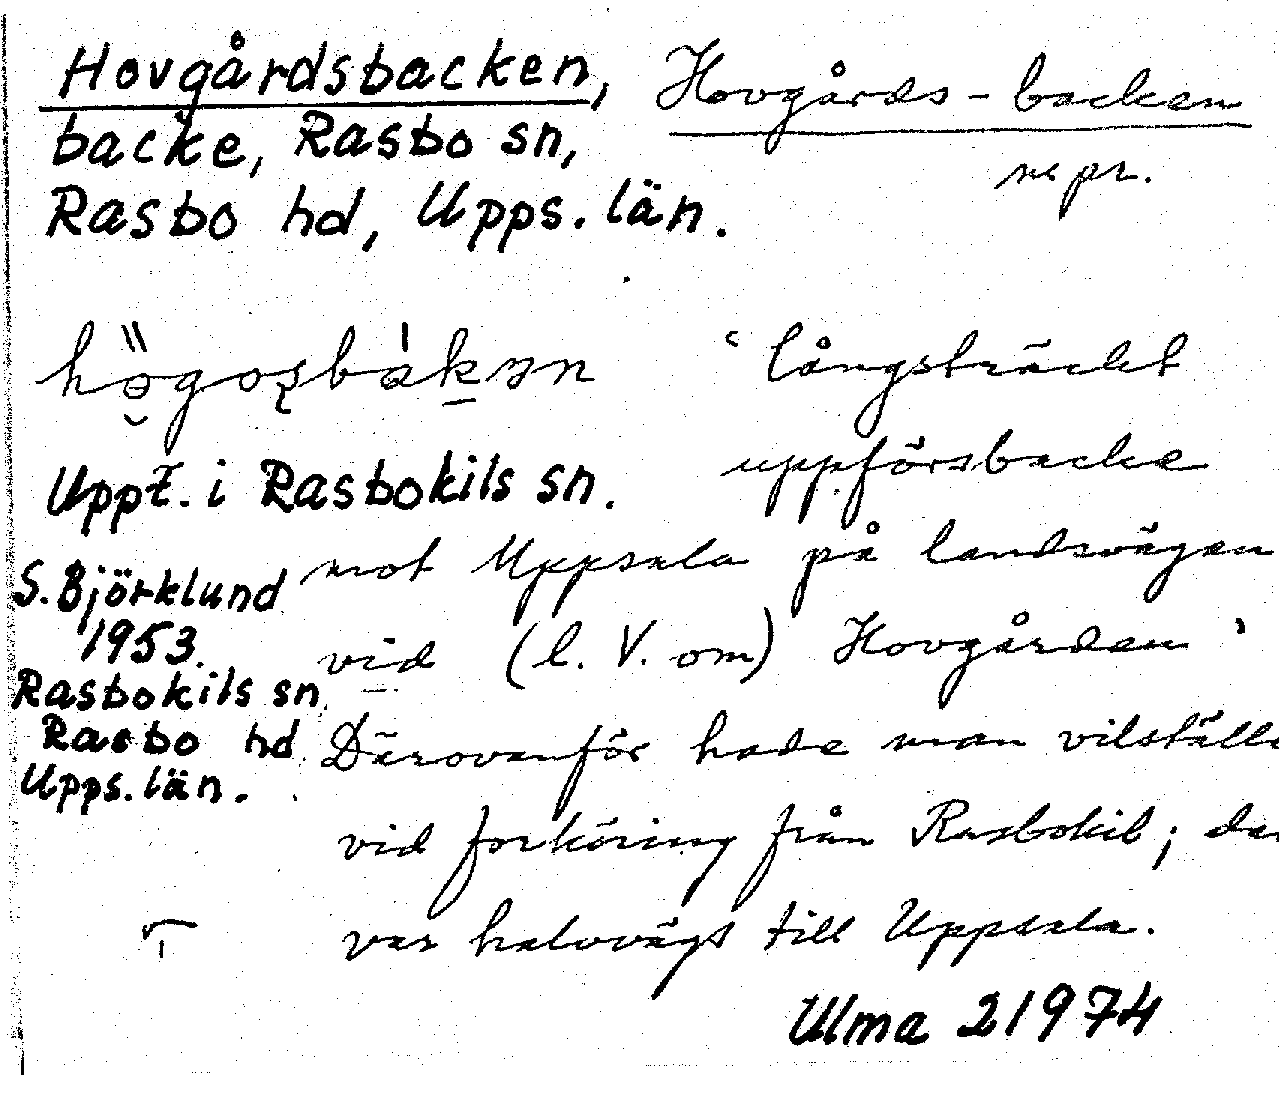 Hovgårdsbacken,
backe, Rasbo sn,
Rasbo hd, Upps. län.
Hovgårds-backen
n pr.
långsträckt
uppförsbacke
Uppt. i Rasbokils sn.
mot Uppsala på landsvägen
vid (l. V. om) Hovgården'
S. Björklund
1953.
Rasbokils sn
Rasbo hd
Upps. län.
Därovanför hade man vilställe
vid forköring från Rasbokil; där
var halvvägs till Uppsala.
Ulma 21974